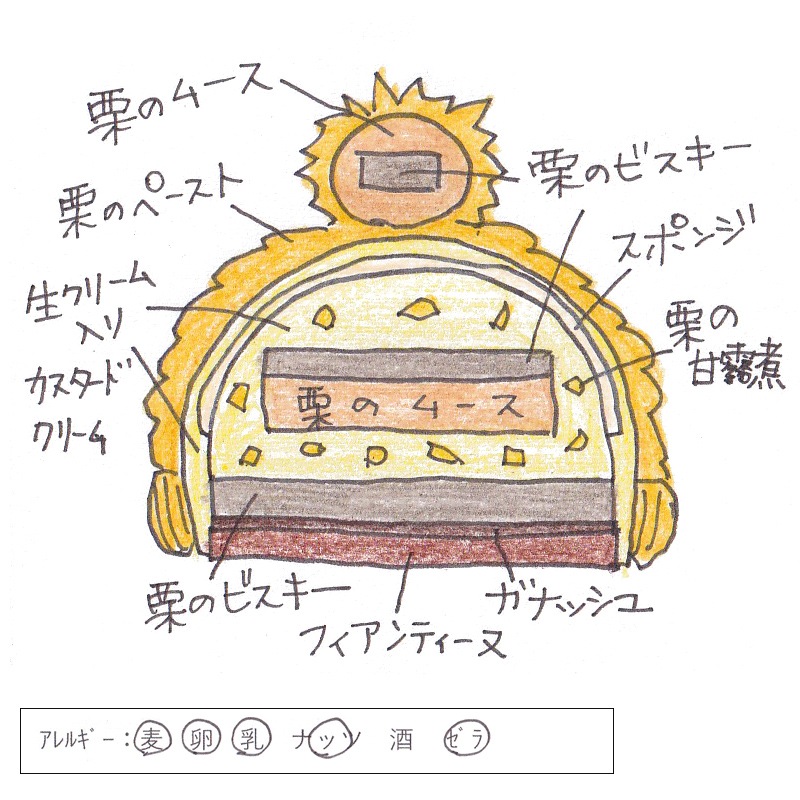 栗のムース
栗のペースト
栗のビスキー
スポンジ
生クリーム
入り
カスタード
クリーム
栗の
甘露煮
栗のムース
栗のビスキー
ガナッシュ
フィアンティーヌ
アレルギー：麦 卵 乳 ナッツ 酒 ゼラ